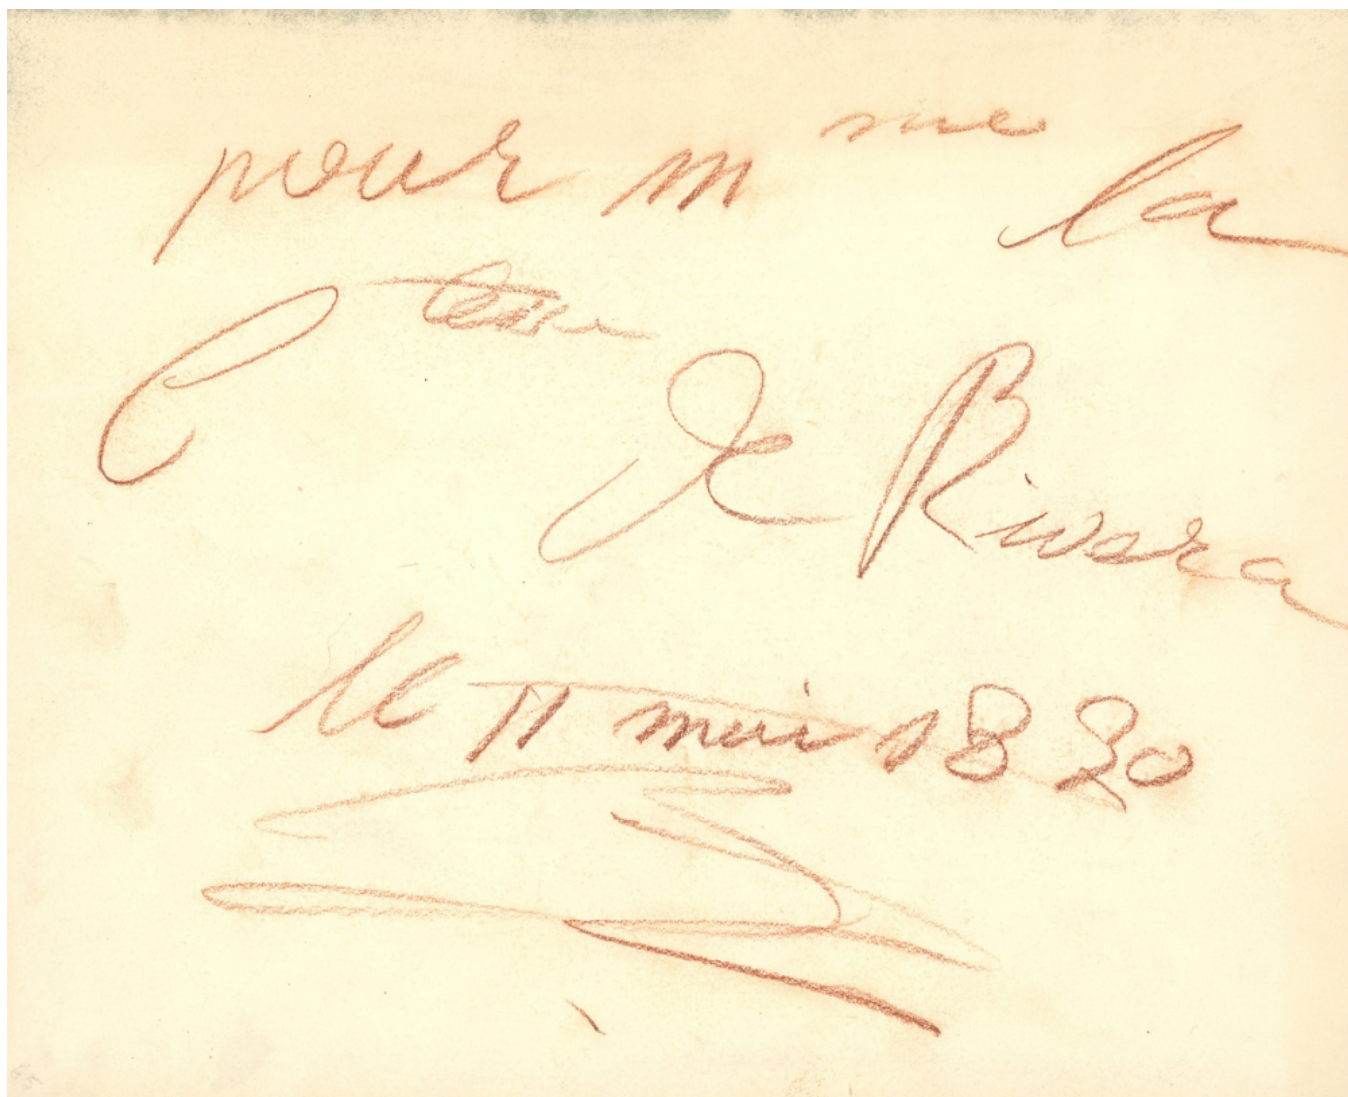 pour Mme la
Ctesse
de Rivera
le 11 mai 1830